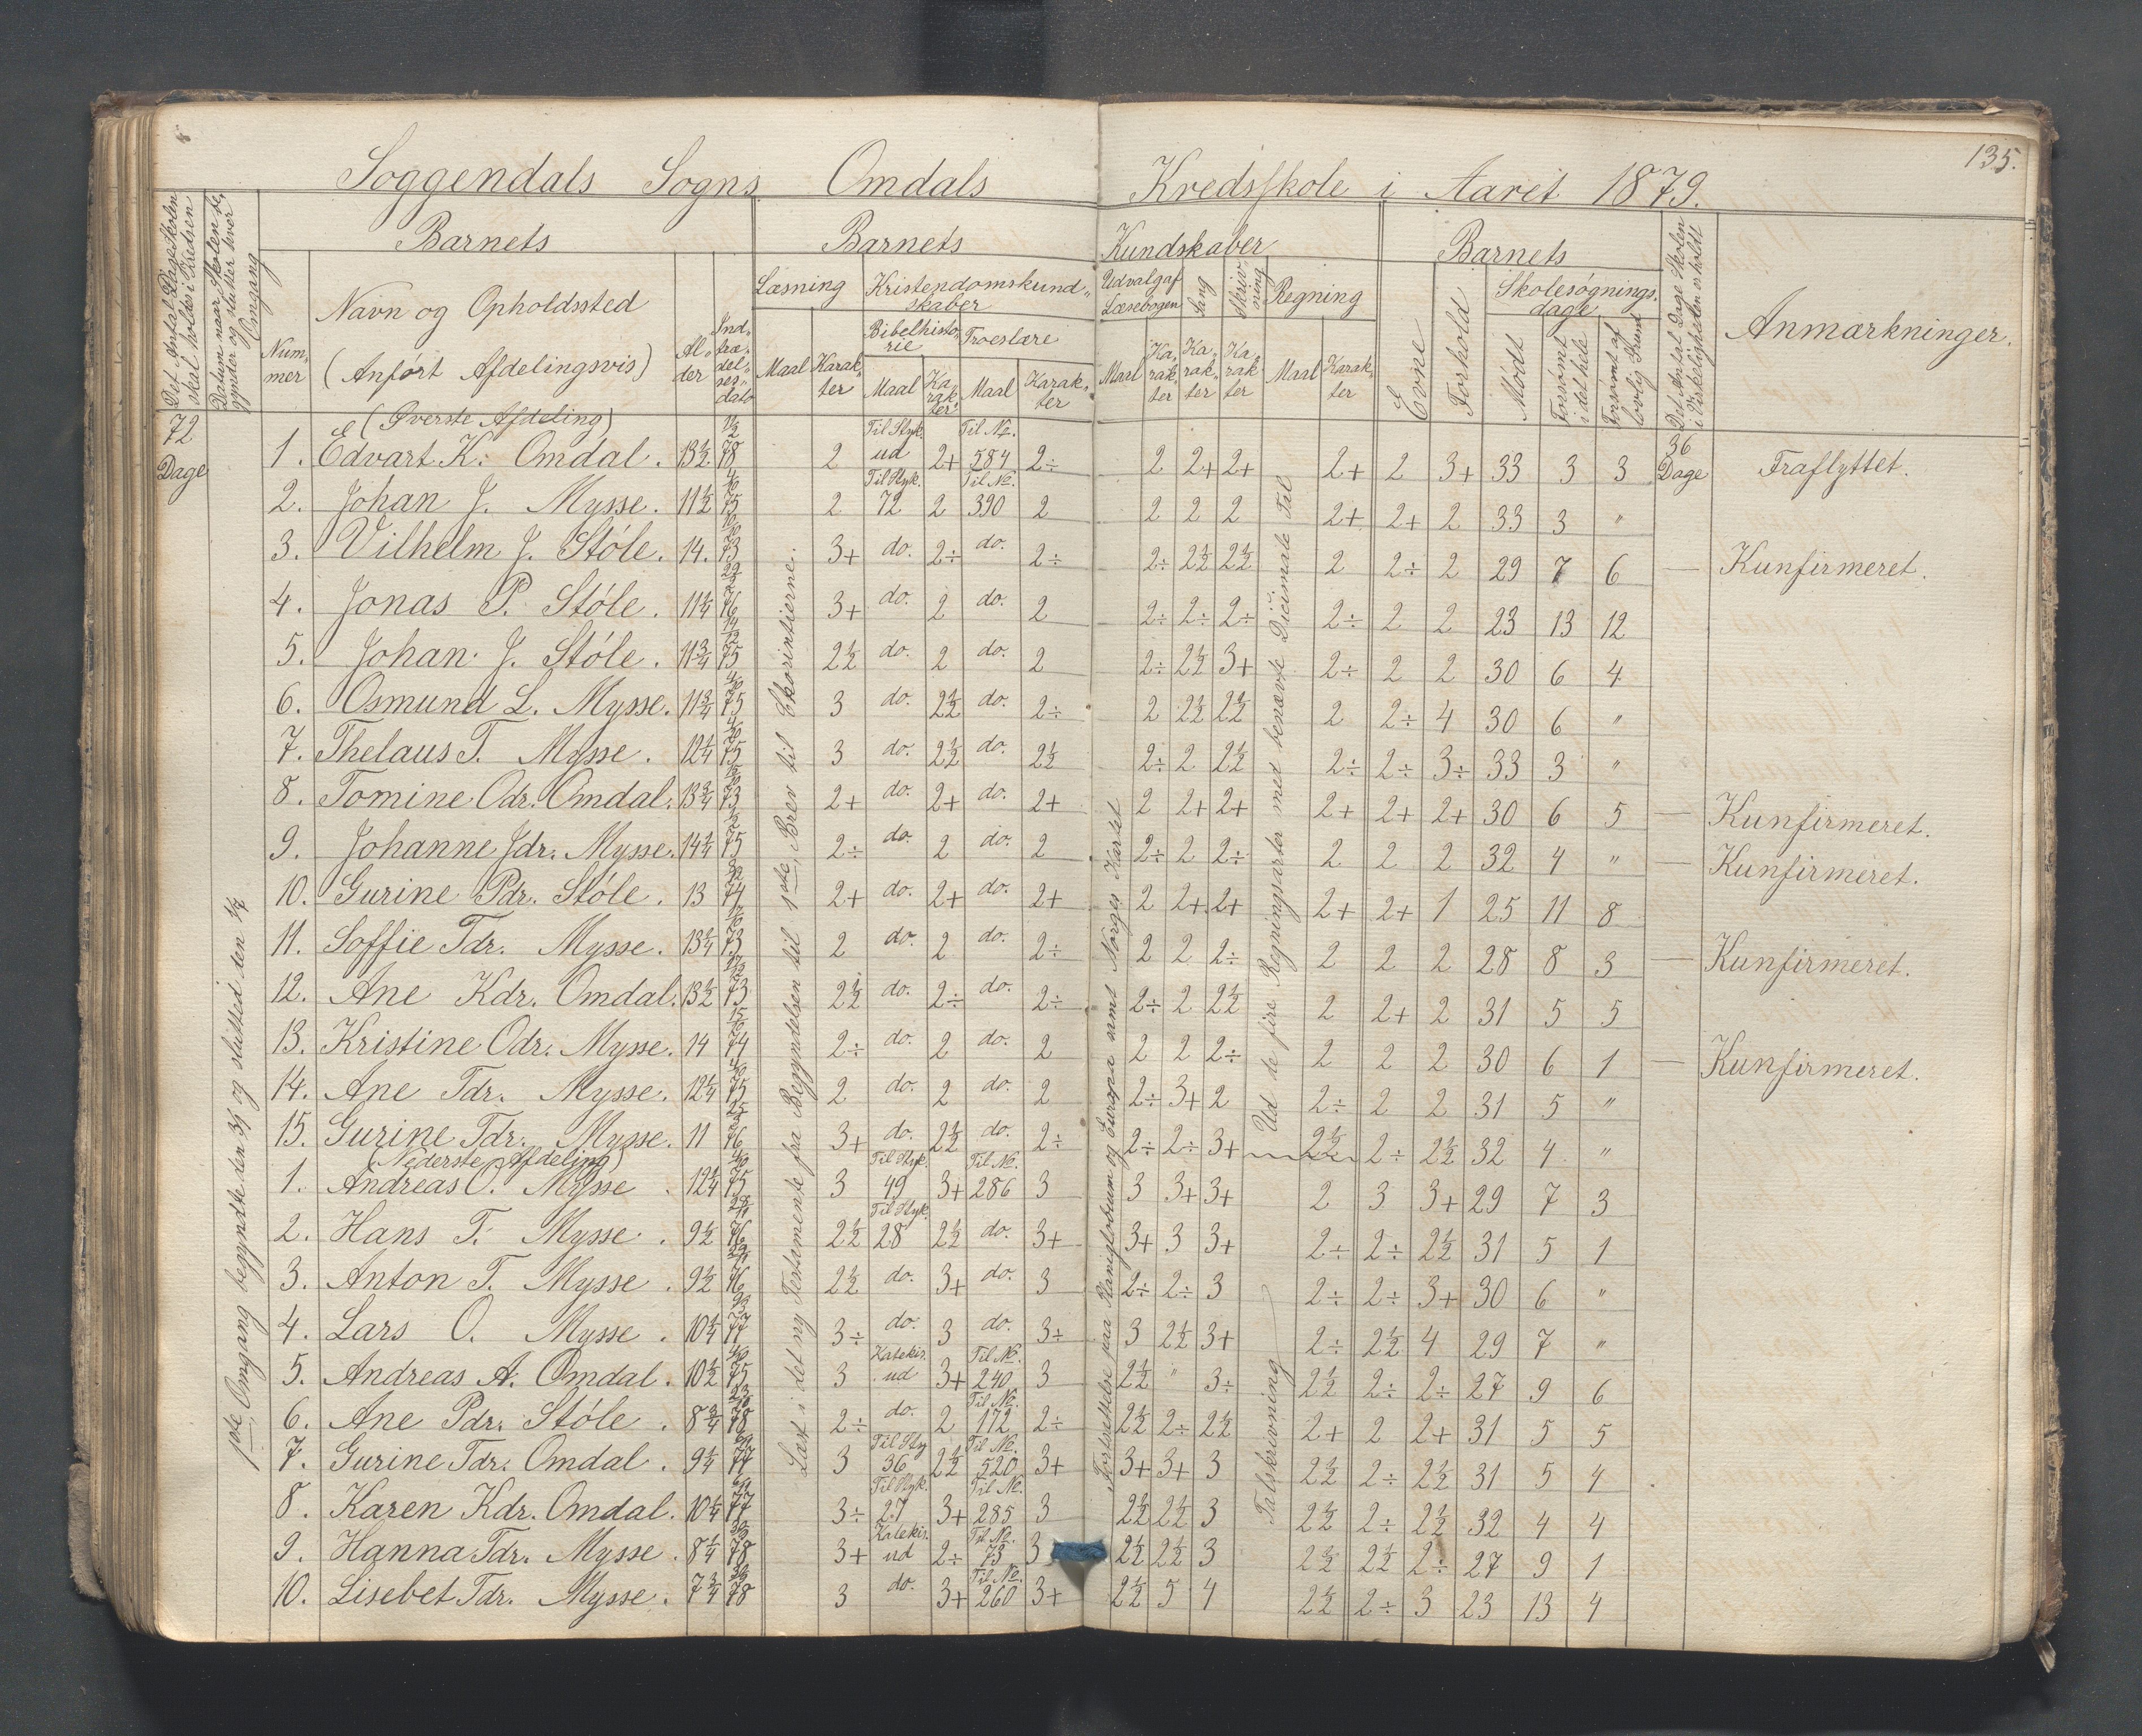 135.
Soggendals Sogns Omdals Kredsskole i Aaret 1879.
Det Antal Dage Skolen skal holdes i Kredsen
Datum naar Skolen begynder og slutter hver Omgang
Barnets
Barnets
Kundskaber
Barnets
Det Antal Dage Skolen i Virkeligheden er holdt
Anmærkninger.
Nummer
Navn og Opholdssted
(Anført Afdelingsvis)
Alder
Indtrædelsesdato
Læsning
Kristendomskundskaber
Udvalg af Læsebogen
Sang
Skrivning
Regning
Evne
Forhold
Skolesøgningsdage
Bibelhistorie
Troeslære
Maal Karakter Maal Karakter Maal Karakter Maal Karakter Karakter Karakter Maal Karakter
Mødt
Forsømt i det hele
Forsømt af lovlig Grund
72 Dage
36 Dage
1ste Omgang begyndte den 3/1 og sluttede den 1/7
Læst i det ny Testamente fra Begyndelsen til 1ste Brev til Chorintierne.
Fortsættelse paa Planiglobium og Europa samt Norges Kartet
Ud de fire Regningsarter med benævte Dicimale Tal
Talskrivning
(Øverste Afdeling)
1. Edvart K. Omdal. 13½ 78 2 Til Styk. ud 2+ Til No. 584 2÷ 2 2+ 2+ 2+ 2 3+ 33 3 3 Fraflyttet.
2. Johan J. Mysse. 11½ 75 2 Til Styk. 72 2 Til No. 390 2 2 2 2 2+ 2+ 2 33 3 "
3. Vilhelm J. Støle. 14. 73 3+ do. 2÷ do. 2÷ 2÷ 2½ 2½ 2 2÷ 2 29 7 6 — Kunfirmeret.
4. Jonas P. Støle. 11¼ 76 3+ do. 2 do. 2 2÷ 2÷ 2÷ 2÷ 2 2 23 13 12
5. Johan J. Støle. 11¾ 75 2½ do. 2 do. 2 2÷ 2½ 3+ 2÷ 2 2 30 6 4
6. Osmund L. Mysse. 11¾ 75 3 do. 2½ do. 2÷ 2 2½ 2½ 2 2÷ 4 30 6 "
7. Thelaus T. Mysse. 12¼ 75 3 do. 2½ do. 2½ 2÷ 2 2½ 2÷ 2÷ 3÷ 33 3 "
8. Tomine Odr. Omdal. 13¾ 73 2+ do. 2+ do. 2+ 2 2+ 2+ 2+ 2+ 2+ 30 6 5 — Kunfirmeret.
9. Johanne Jdr. Mysse. 14¼ 75 2÷ do. 2 do. 2 2÷ 2 2÷ 2 2 2 32 4 " — Kunfirmeret.
10. Gurine Pdr. Støle. 13 74 2+ do. 2+ do. 2+ 2 2+ 2+ 2+ 2+ 1 25 11 8
11. Soffie Tdr. Mysse. 13¼ 73 2 do. 2 do. 2÷ 2 2 2÷ 2 2 2 28 8 3 — Kunfirmeret.
12. Ane Kdr. Omdal. 13½ 73 2½ do. 2÷ do. 2÷ 2÷ 2 2½ 2 2+ 2 31 5 5
13. Kristine Odr. Mysse. 14 74 2÷ do. 2 do. 2 2 2 2÷ 2 2 2 30 6 1 — Kunfirmeret.
14. Ane Tdr. Mysse. 12¼ 75 2 do. 2 do. 2 2÷ 3+ 2 2÷ 2 2 31 5 "
15. Gurine Tdr. Mysse. 11 76 3+ do. 2½ do. 2÷ 2÷ 2÷ 3+ 2½ 2÷ 2½ 32 4 "
(Nederste Afdeling)
1. Andreas O. Mysse. 12¼ 75 3 Til Styk. 49 3+ Til No. 286 3 3 3+ 3+ 2 3 3+ 29 7 3
2. Hans T. Mysse. 9½ 76 2½ Til Styk. 28 2½ do. 3+ 3+ 3 3+ 2÷ 2÷ 2½ 31 5 1
3. Anton T. Mysse. 9½ 76 2½ do. 3+ do. 3 2÷ 2÷ 3 2÷ 2÷ 3+ 30 6 "
4. Lars O. Mysse. 10¼ 77 3÷ do. 3 do. 3÷ 3 2½ 3+ 2÷ 2½ 4 29 7 "
5. Andreas A. Omdal. 10½ 75 3 Katekis. ud 3+ Til No. 240 3 2½ " 3÷ 2½ 2÷ 2÷ 27 9 6
6. Ane Pdr. Støle. 8¾ 78 2÷ do. 2 Til No. 172 2÷ 2½ 2÷ 2½ 2+ 2 2+ 31 5 5
7. Gurine Tdr. Omdal. 9¼ 77 3 Til Sty 36 2½ Til No. 520 3+ 3+ 3+ 3 2½ 2÷ 2½ 31 5 4
8. Karen Kdr. Omdal. 10¼ 77 3÷ Til Styk. 27 3+ Til No. 285 3 2½ 2½ 3 2½ 2÷ 2½ 32 4 4
9. Hanna Tdr. Mysse. 8¼ 78 3+ Katekis. ud 2÷ Til No. 73 3 2½ 2½ 3 2½ 2½ 2÷ 27 9 1
10. Lisebet Tdr. Mysse. 7¾ 78 3 do. 3+ Til No. 260 3+ 2½ 5 4 2½ 2÷ 3 23 13 4